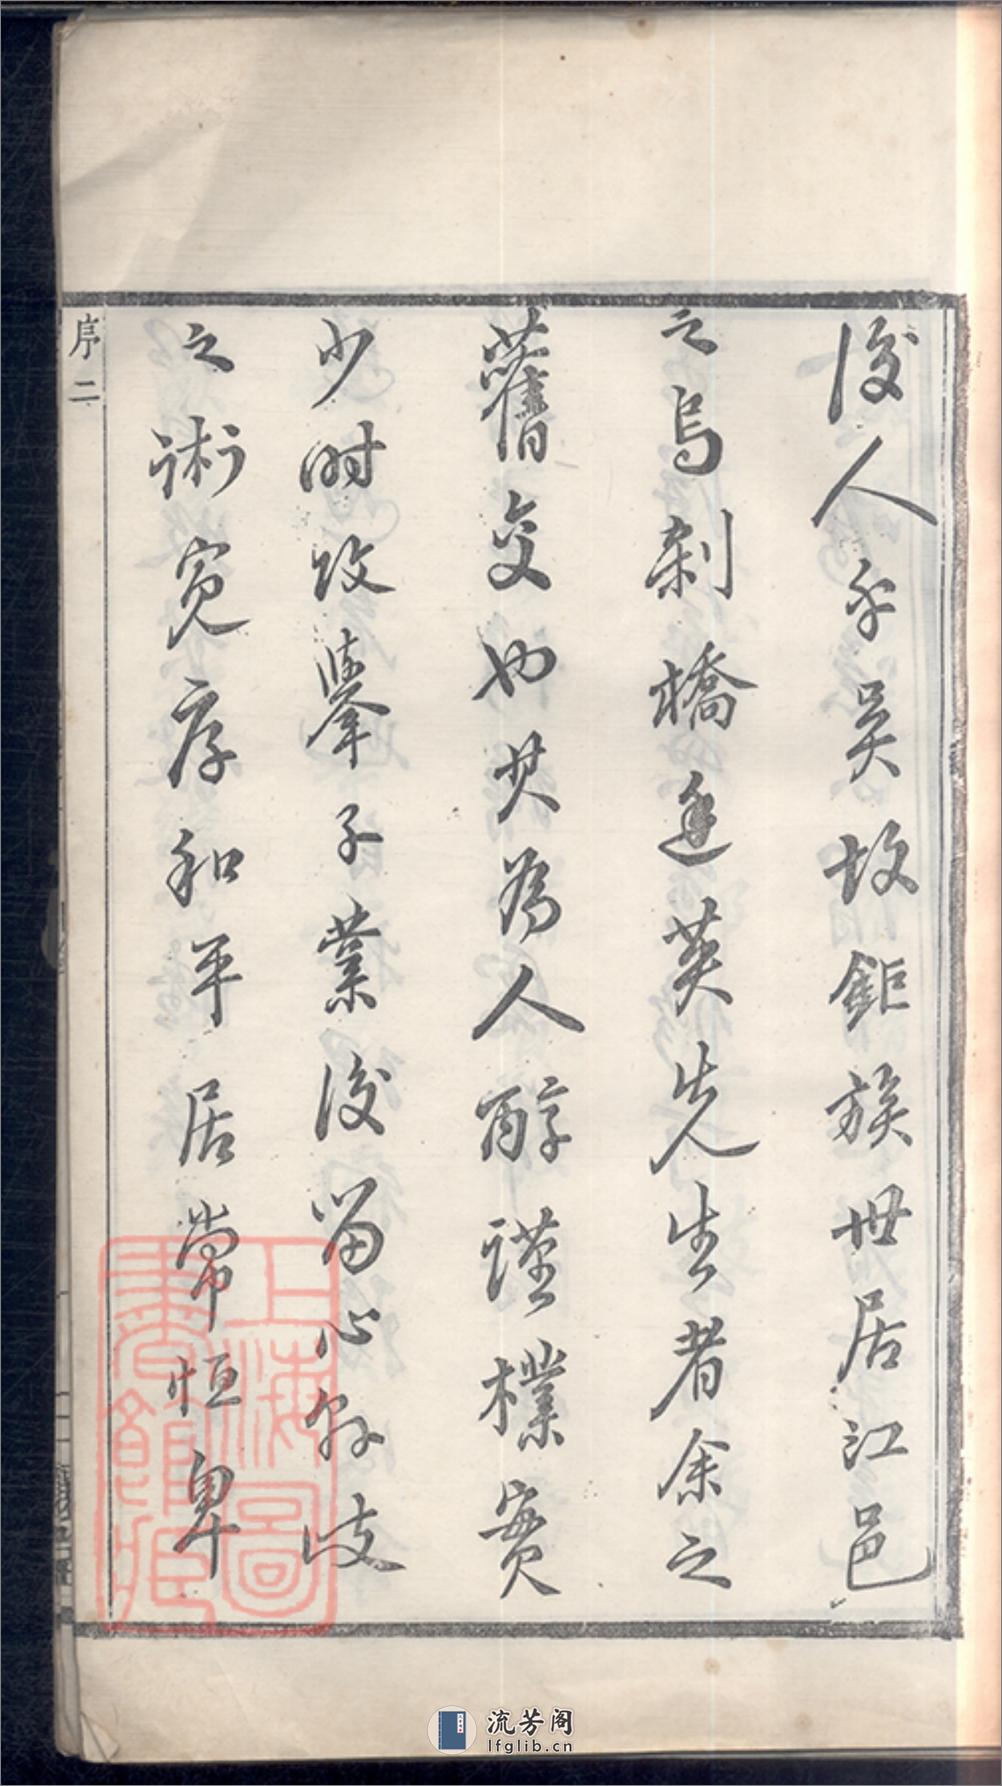 後人乎吳故鉅族世居江邑
之烏剎橋廷英先生者余之
舊交也其為人醇謹樸實
少時攻舉子業後留心于岐
之術寬厚和平居常恒卑
序二
上海圖書館藏
流芳阁
lfglib.cn